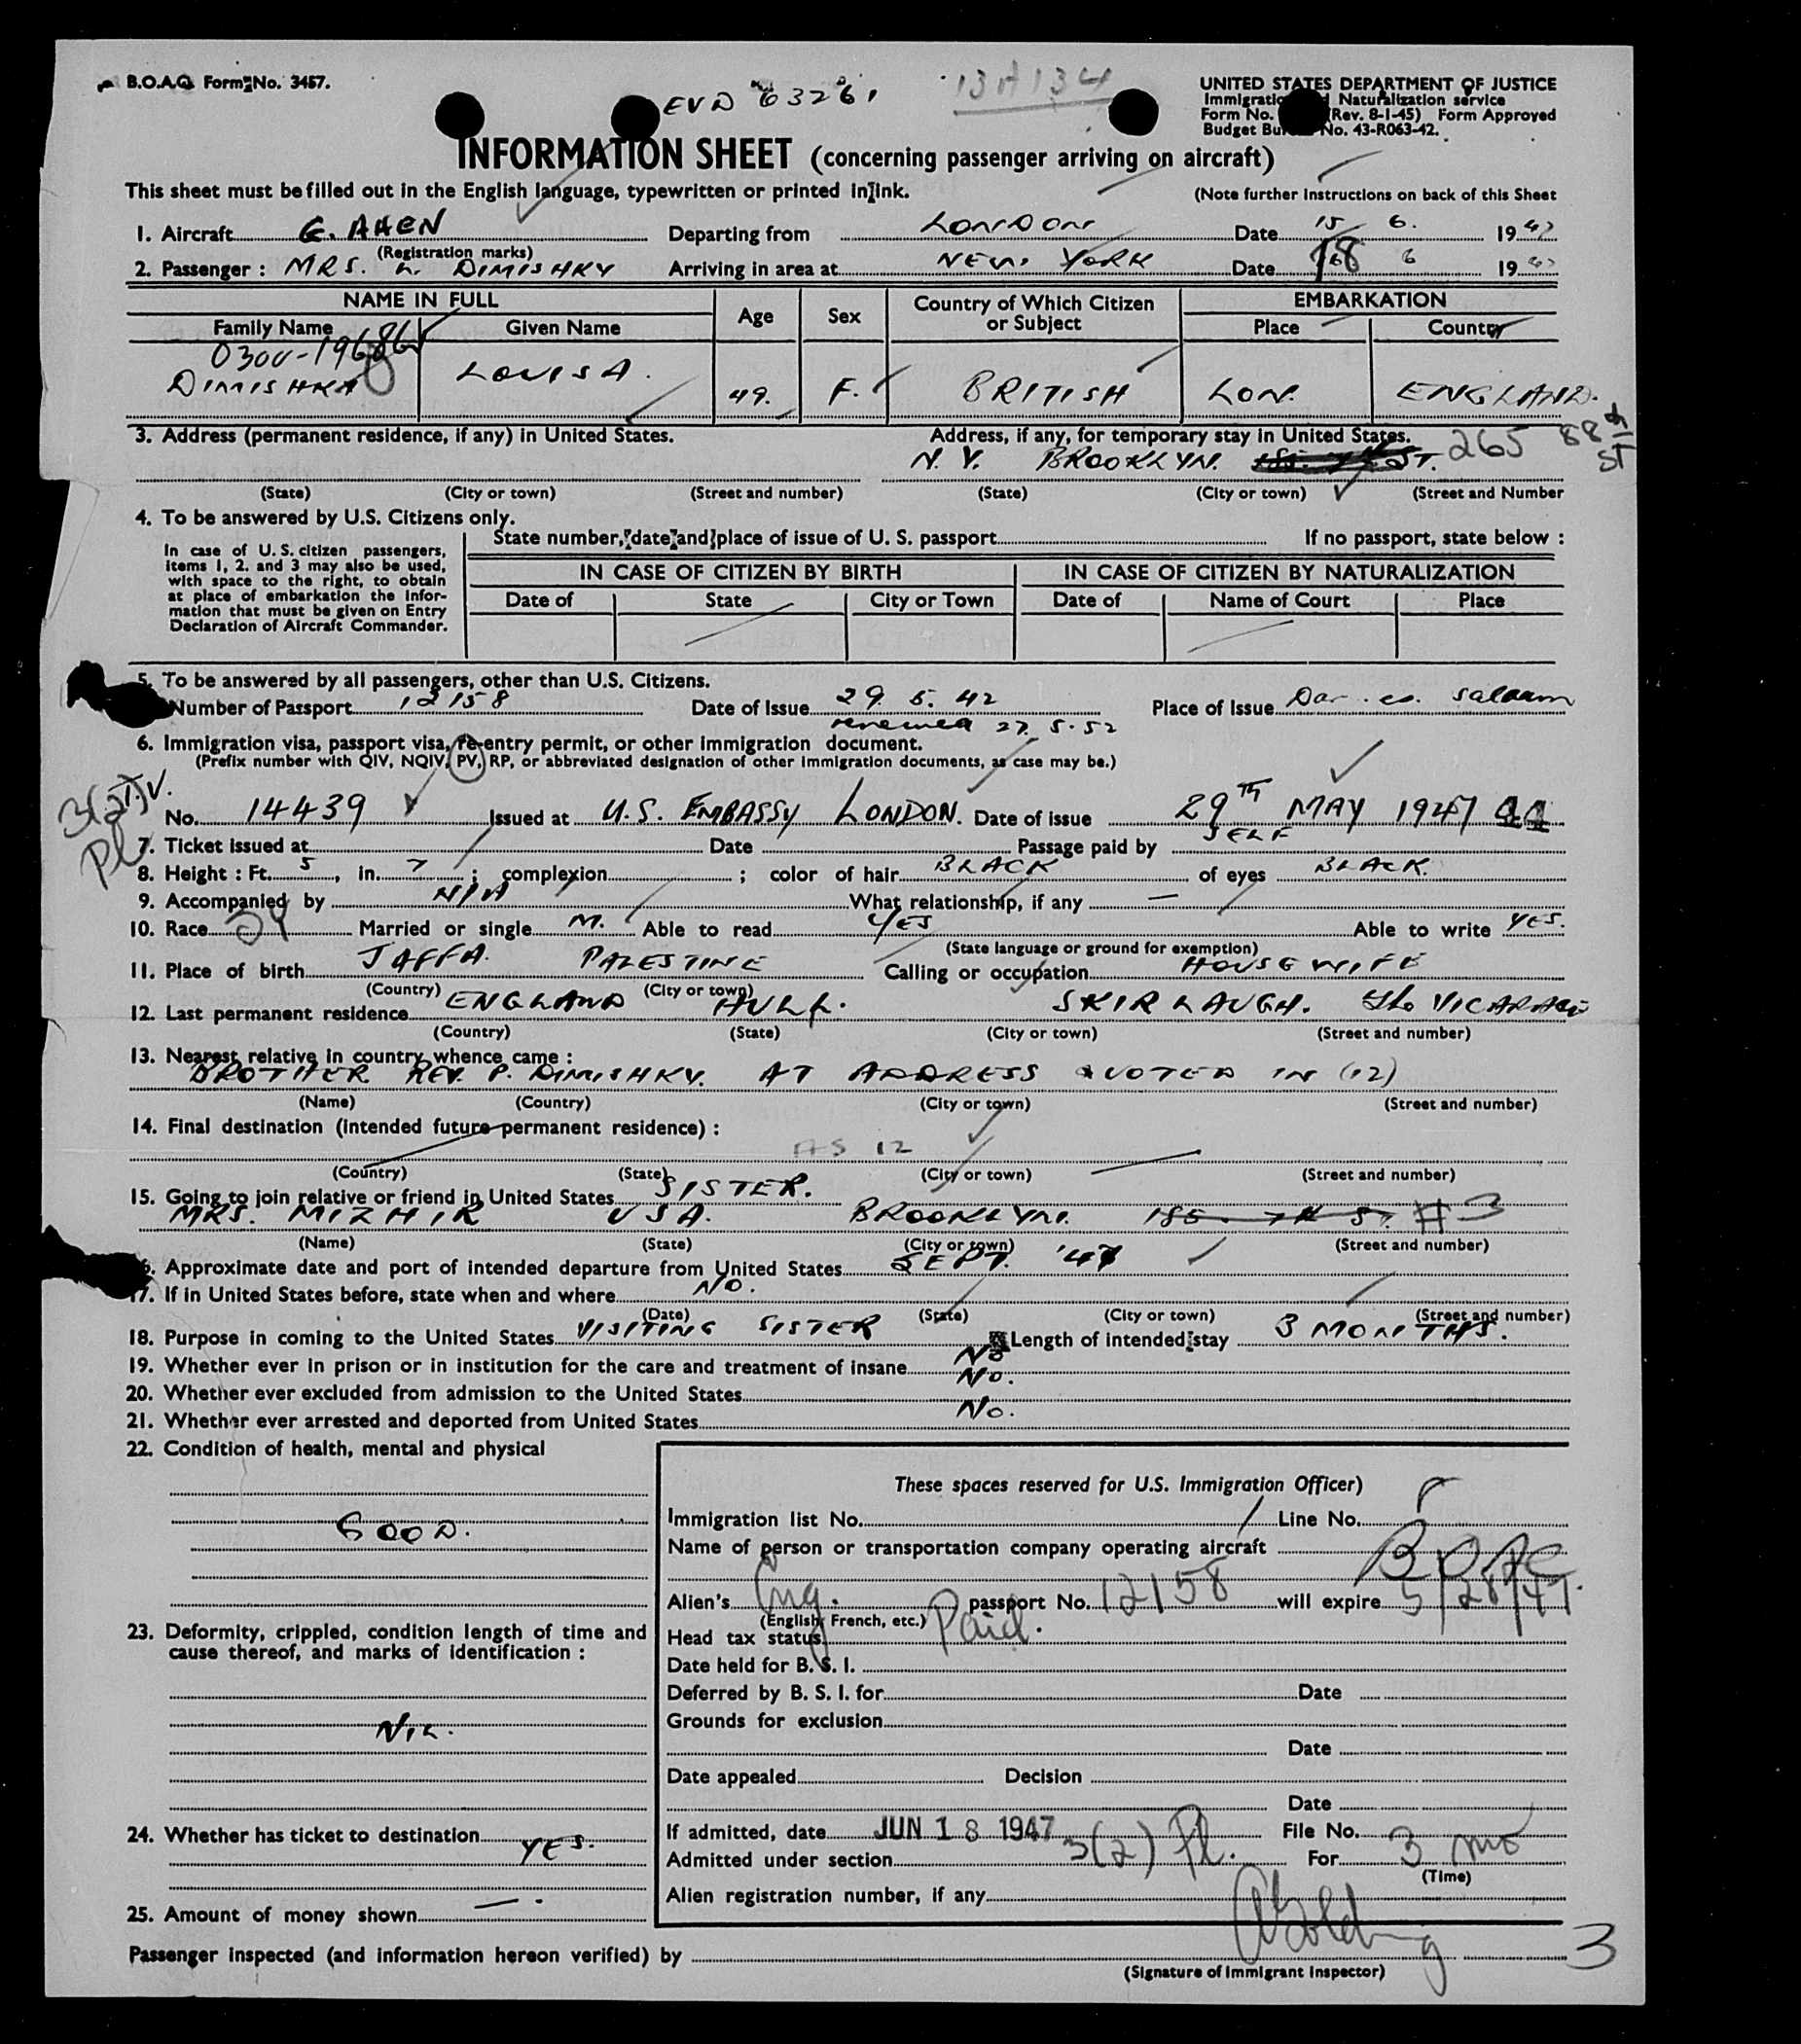 B.O.A.C. Form No. 3457.
EVD 63261
13A134
UNITED STATES DEPARTMENT OF JUSTICE
Immigration Naturalization service
Form No. (Rev. 8-1-45) Form Approved
Budget Bureau No. 43-R063-42.
INFORMATION SHEET (concerning passenger arriving on aircraft)
This sheet must be filled out in the English language, typewritten or printed in ink.
(Note further Instructions on back of this Sheet
1. Aircraft G. AHEN Departing from LONDON Date 15 6. 1947
(Registration marks)
2. Passenger : MRS. L. DIMISHKY Arriving in area at NEW YORK Date 18 6 1947
NAME IN FULL Age Sex Country of Which Citizen or Subject EMBARKATION
Family Name Given Name Place Country
0300-19686
DIMISHKA LOUISA. 49. F. BRITISH LON. ENGLAND.
3. Address (permanent residence, if any) in United States. Address, if any, for temporary stay in United States.
N. Y. BROOKLYN. ST. 265 88th ST
(State) (City or town) (Street and number) (State) (City or town) (Street and Number
4. To be answered by U.S. Citizens only.
State number, date and place of issue of U. S. passport If no passport, state below :
In case of U. S. citizen passengers,
items 1, 2. and 3 may also be used,
with space to the right, to obtain
at place of embarkation the Infor-
mation that must be given on Entry
Declaration of Aircraft Commander.
IN CASE OF CITIZEN BY BIRTH IN CASE OF CITIZEN BY NATURALIZATION
Date of State City or Town Date of Name of Court Place
5. To be answered by all passengers, other than U.S. Citizens.
Number of Passport 12158 Date of Issue 29. 5. 42 Place of Issue Dar. es. Salaam
renewed 27. 5. 52
6. Immigration visa, passport visa, re-entry permit, or other immigration document.
(Prefix number with QIV, NQIV, PV, RP, or abbreviated designation of other immigration documents, as case may be.)
3(2) T.V.
Pl
No. 14439 Issued at U.S. EMBASSY LONDON. Date of issue 29TH MAY 1947
7. Ticket issued at Date Passage paid by SELF
8. Height : Ft. 5, in. 7 ; complexion ; color of hair BLACK of eyes BLACK.
9. Accompanied by N/A What relationship, if any —
10. Race Married or single M. Able to read YES Able to write YES.
(State language or ground for exemption)
11. Place of birth JAFFA. PALESTINE Calling or occupation HOUSEWIFE
(Country) (City or town)
12. Last permanent residence ENGLAND HULL. SKIRLAUGH. The VICARAGE
(Country) (State) (City or town) (Street and number)
13. Nearest relative in country whence came :
BROTHER REV. P. DIMISHKY. AT ADDRESS QUOTED IN (12)
(Name) (Country) (City or town) (Street and number)
14. Final destination (intended future permanent residence) :
AS 12
(Country) (State) (City or town) (Street and number)
15. Going to join relative or friend in United States SISTER.
MRS. MIZHIR USA. BROOKLYN. # 3
(Name) (State) (City or town) (Street and number)
16. Approximate date and port of intended departure from United States SEPT. '47
17. If in United States before, state when and where NO.
(Date) (State) (City or town) (Street and number)
18. Purpose in coming to the United States VISITING SISTER Length of intended stay 3 MONTHS.
19. Whether ever in prison or in institution for the care and treatment of insane No
20. Whether ever excluded from admission to the United States No.
21. Whether ever arrested and deported from United States No.
22. Condition of health, mental and physical
GOOD.
23. Deformity, crippled, condition length of time and
cause thereof, and marks of identification :
NIL.
24. Whether has ticket to destination YES.
25. Amount of money shown — .
These spaces reserved for U.S. Immigration Officer)
Immigration list No. Line No.
Name of person or transportation company operating aircraft BOAC
Alien's Eng. passport No. 12158 will expire 5/28/47.
(English, French, etc.)
Head tax status Paid.
Date held for B. S. I.
Deferred by B. S. I. for Date
Grounds for exclusion
Date
Date appealed Decision
Date
If admitted, date JUN 18 1947 File No.
Admitted under section 3(2) Pl. For 3 mo
(Time)
Alien registration number, if any
Passenger inspected (and information hereon verified) by
(Signature of Immigrant Inspector)
3